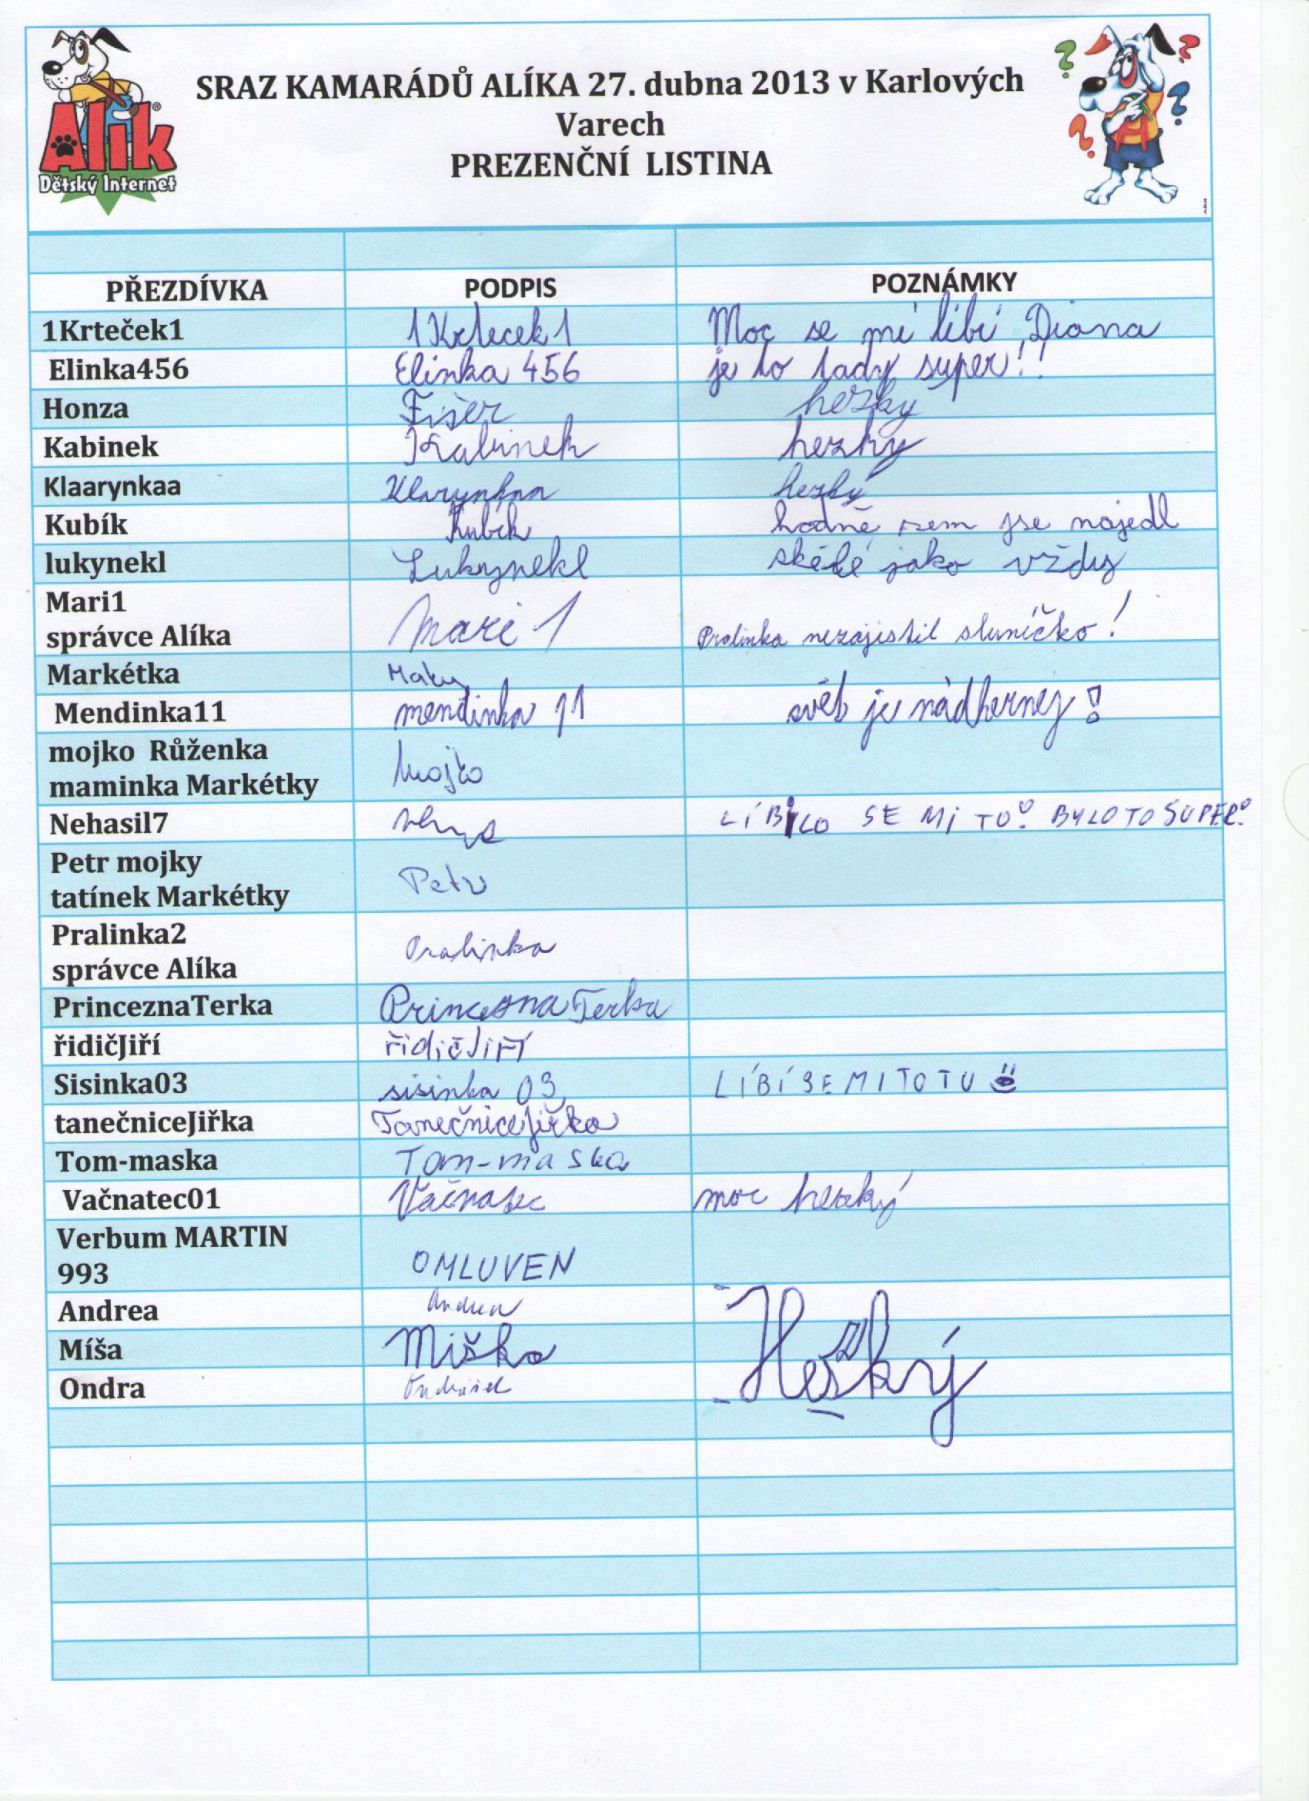 Alík
Dětský Internet
SRAZ KAMARÁDŮ ALÍKA 27. dubna 2013 v Karlových
Varech
PREZENČNÍ LISTINA
PŘEZDÍVKA PODPIS POZNÁMKY
1Krteček1 1Krtecek1 Moc se mi líbí Diana
Elinka456 Elinka 456 je to tady super!!
Honza Fišer hezky
Kabinek Kabinek hezky
Klaarynkaa Klarynkaa hezký
Kubík Kubík hodně sem jse najedl
lukynekl Lukynekl jako vždy
Mari1
správce Alíka Mari 1 Pralinka nezajistil sluníčko!
Markétka Maky
Mendinka11 mendinka 11 svět je nádhernej!
mojko Růženka
maminka Markétky Mojko
Nehasil7 LÍBILO SE MI TO! BYLO TO SUPER!
Petr mojky
tatínek Markétky Petr
Pralinka2
správce Alíka Pralinka
PrinceznaTerka PrinceznaTerka
řidičJiří řidičJiří
Sisinka03 sisinka 03 LÍBÍ SE MI TO TU
tanečniceJiřka TanečniceJiřka
Tom-maska Tom-maska
Vačnatec01 Vačnatec moc hezký
Verbum MARTIN
993 OMLUVEN
Andrea Andrea
Míša Miška Hezký
Ondra